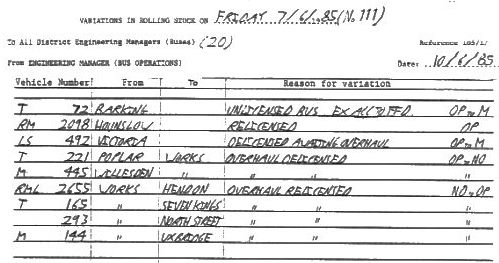 VARIATIONS IN ROLLING STOCK ON FRIDAY 7/6/85 (No. 111)
To All District Engineering Managers (Buses) (20) Reference 105/1/
From ENGINEERING MANAGER (BUS OPERATIONS) Date: 10/6/85
Vehicle Number From To Reason for variation
T 72 BARKING UNLICENSED BUS. EX ALLOTTED. OP to M
RM 2098 HOUNSLOW RELICENSED OP
LS 492 VICTORIA DELICENSED AWAITING OVERHAUL OP to M
T 221 POPLAR WORKS OVERHAUL DELICENSED OP to NO
M 445 WILLESDEN " " " "
RML 2655 WORKS HENDON OVERHAUL RELICENSED NO to OP
T 165 " SEVEN KINGS " " "
293 " NORTH STREET " " "
M 144 " UXBRIDGE " " "